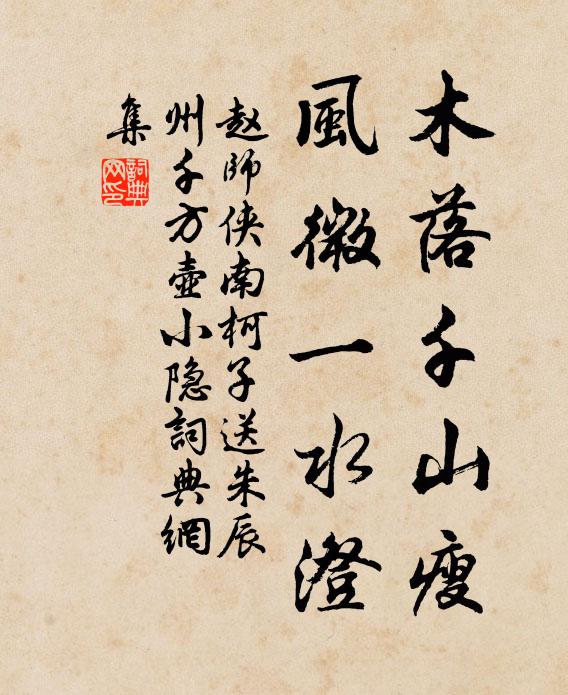 木落千山瘦
風微一水澄
赵師侠南柯子送朱辰
州千方壺小隐詞典網
集
詞典網印